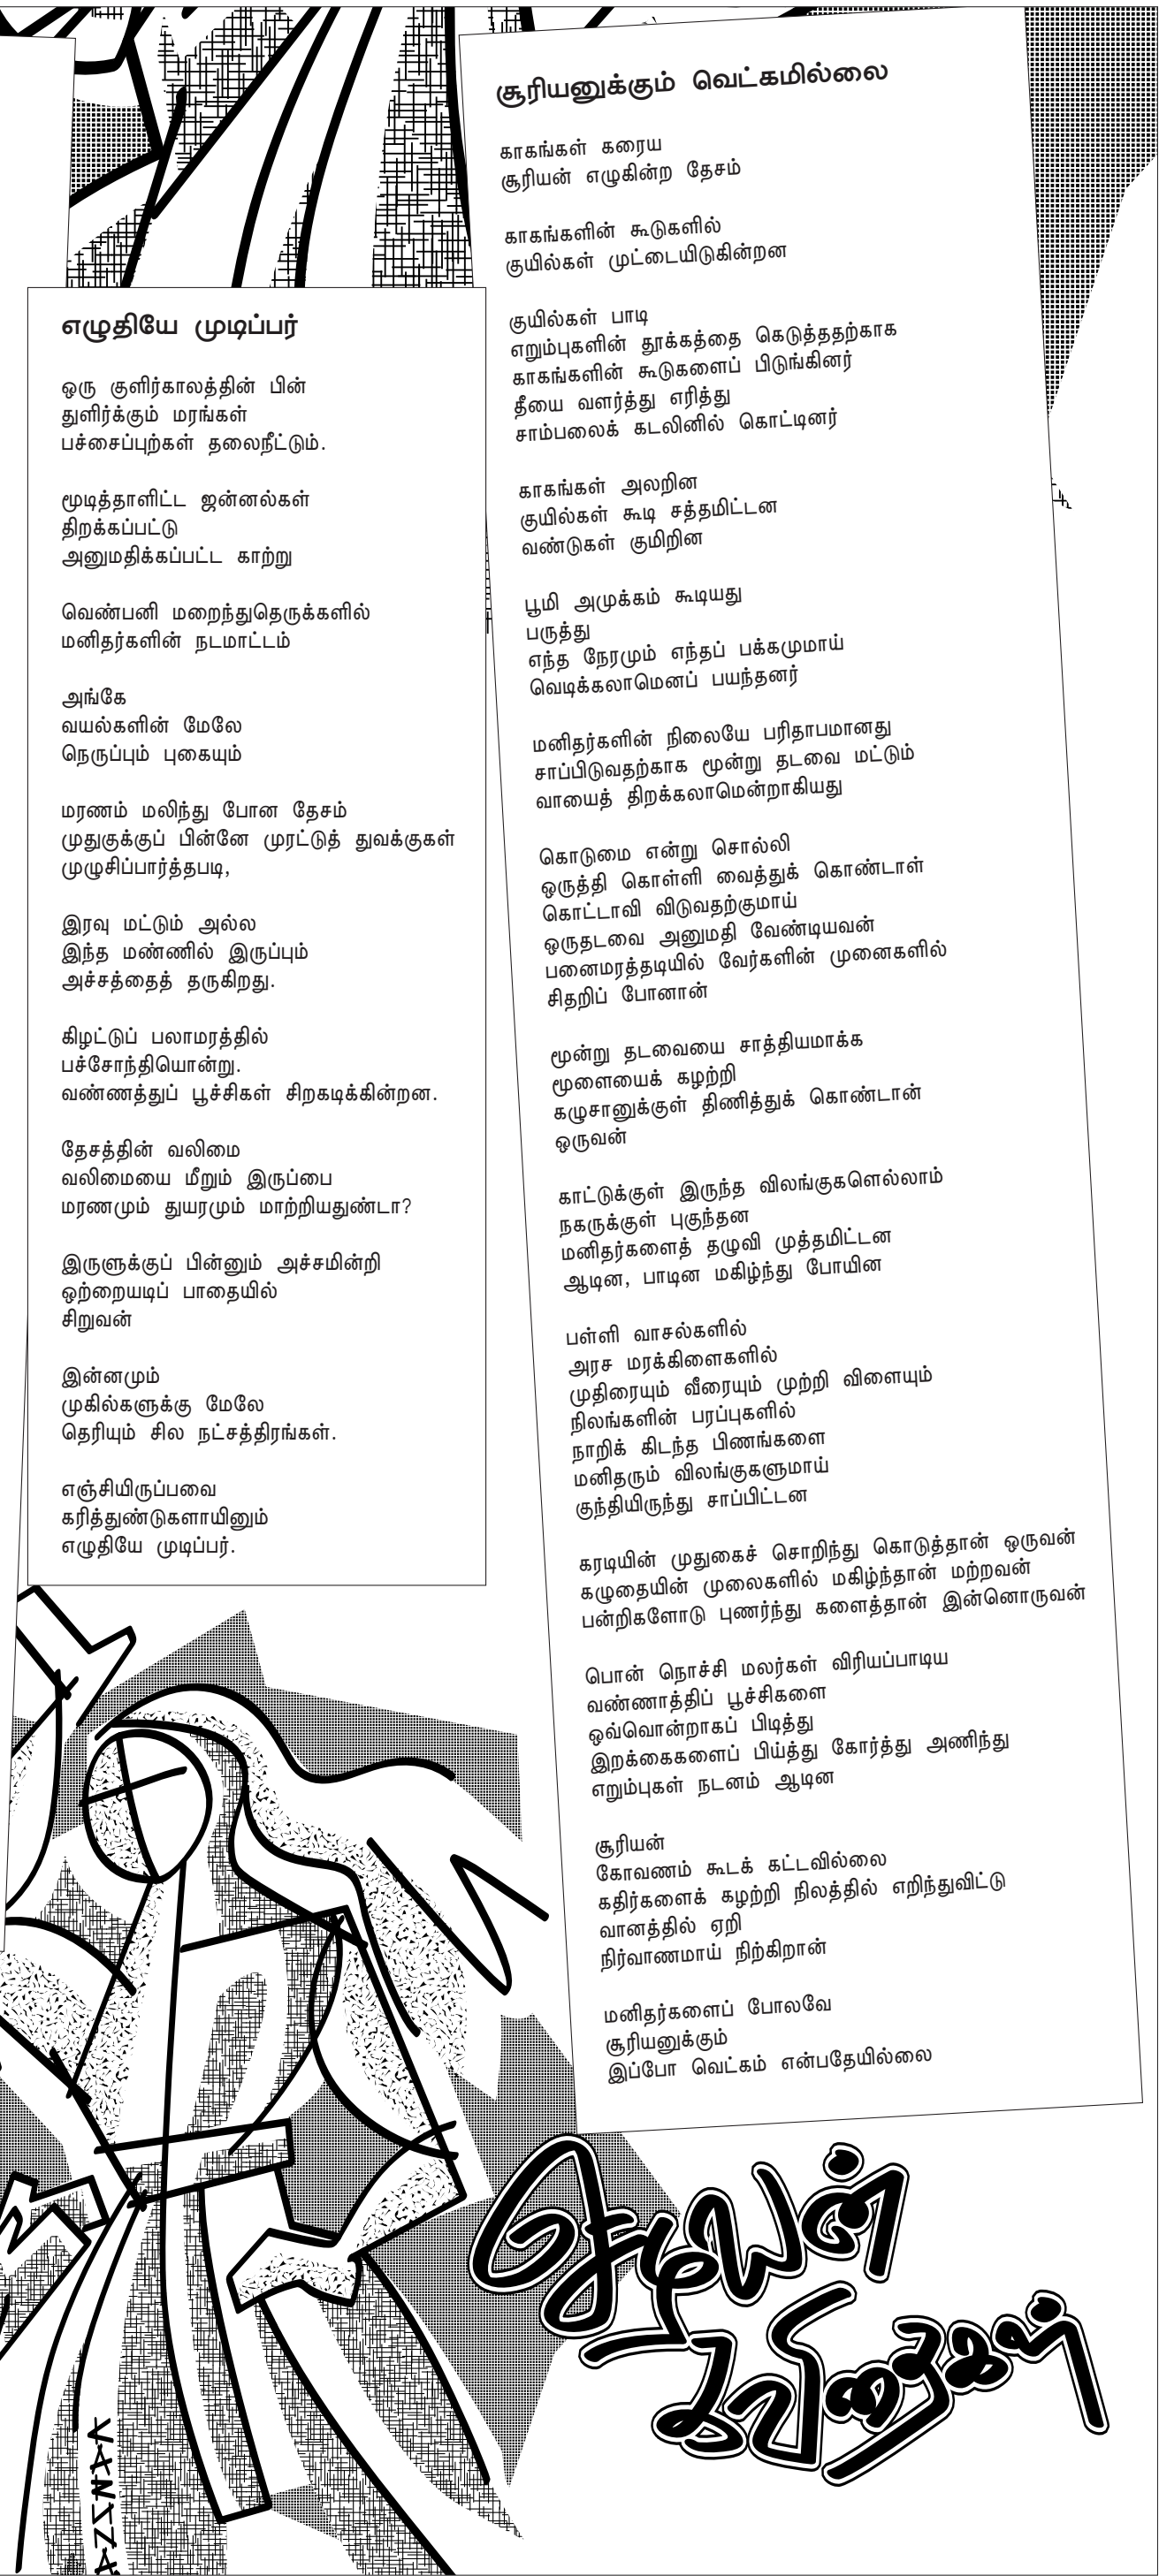 எழுதியே முடிப்பர்
ஒரு குளிர்காலத்தின் பின்
துளிர்க்கும் மரங்கள்
பச்சைப்புற்கள் தலைநீட்டும்.
மூடித்தாளிட்ட ஜன்னல்கள்
திறக்கப்பட்டு
அனுமதிக்கப்பட்ட காற்று
வெண்பனி மறைந்துதெருக்களில்
மனிதர்களின் நடமாட்டம்
அங்கே
வயல்களின் மேலே
நெருப்பும் புகையும்
மரணம் மலிந்து போன தேசம்
முதுகுக்குப் பின்னே முரட்டுத் துவக்குகள்
முழுசிப்பார்த்தபடி,
இரவு மட்டும் அல்ல
இந்த மண்ணில் இருப்பும்
அச்சத்தைத் தருகிறது.
கிழட்டுப் பலாமரத்தில்
பச்சோந்தியொன்று.
வண்ணத்துப் பூச்சிகள் சிறகடிக்கின்றன.
தேசத்தின் வலிமை
வலிமையை மீறும் இருப்பை
மரணமும் துயரமும் மாற்றியதுண்டா?
இருளுக்குப் பின்னும் அச்சமின்றி
ஒற்றையடிப் பாதையில்
சிறுவன்
இன்னமும்
முகில்களுக்கு மேலே
தெரியும் சில நட்சத்திரங்கள்.
எஞ்சியிருப்பவை
கரித்துண்டுகளாயினும்
எழுதியே முடிப்பர்.
சூரியனுக்கும் வெட்கமில்லை
காகங்கள் கரைய
சூரியன் எழுகின்ற தேசம்
காகங்களின் கூடுகளில்
குயில்கள் முட்டையிடுகின்றன
குயில்கள் பாடி
எறும்புகளின் தூக்கத்தை கெடுத்ததற்காக
காகங்களின் கூடுகளைப் பிடுங்கினர்
தீயை வளர்த்து எரித்து
சாம்பலைக் கடலினில் கொட்டினர்
காகங்கள் அலறின
குயில்கள் கூடி சத்தமிட்டன
வண்டுகள் குமிறின
பூமி அமுக்கம் கூடியது
பருத்து
எந்த நேரமும் எந்தப் பக்கமுமாய்
வெடிக்கலாமெனப் பயந்தனர்
மனிதர்களின் நிலையே பரிதாபமானது
சாப்பிடுவதற்காக மூன்று தடவை மட்டும்
வாயைத் திறக்கலாமென்றாகியது
கொடுமை என்று சொல்லி
ஒருத்தி கொள்ளி வைத்துக் கொண்டாள்
கொட்டாவி விடுவதற்குமாய்
ஒருதடவை அனுமதி வேண்டியவன்
பனைமரத்தடியில் வேர்களின் முனைகளில்
சிதறிப் போனான்
மூன்று தடவையை சாத்தியமாக்க
மூளையைக் கழற்றி
கழுசானுக்குள் திணித்துக் கொண்டான்
ஒருவன்
காட்டுக்குள் இருந்த விலங்குகளெல்லாம்
நகருக்குள் புகுந்தன
மனிதர்களைத் தழுவி முத்தமிட்டன
ஆடின, பாடின மகிழ்ந்து போயின
பள்ளி வாசல்களில்
அரச மரக்கிளைகளில்
முதிரையும் வீரையும் முற்றி விளையும்
நிலங்களின் பரப்புகளில்
நாறிக் கிடந்த பிணங்களை
மனிதரும் விலங்குகளுமாய்
குந்தியிருந்து சாப்பிட்டன
கரடியின் முதுகைச் சொறிந்து கொடுத்தான் ஒருவன்
கழுதையின் முலைகளில் மகிழ்ந்தான் மற்றவன்
பன்றிகளோடு புணர்ந்து களைத்தான் இன்னொருவன்
பொன் நொச்சி மலர்கள் விரியப்பாடிய
வண்ணாத்திப் பூச்சிகளை
ஒவ்வொன்றாகப் பிடித்து
இறக்கைகளைப் பிய்த்து கோர்த்து அணிந்து
எறும்புகள் நடனம் ஆடின
சூரியன்
கோவணம் கூடக் கட்டவில்லை
கதிர்களைக் கழற்றி நிலத்தில் எறிந்துவிட்டு
வானத்தில் ஏறி
நிர்வாணமாய் நிற்கிறான்
மனிதர்களைப் போலவே
சூரியனுக்கும்
இப்போ வெட்கம் என்பதேயில்லை
கவிதைகள்